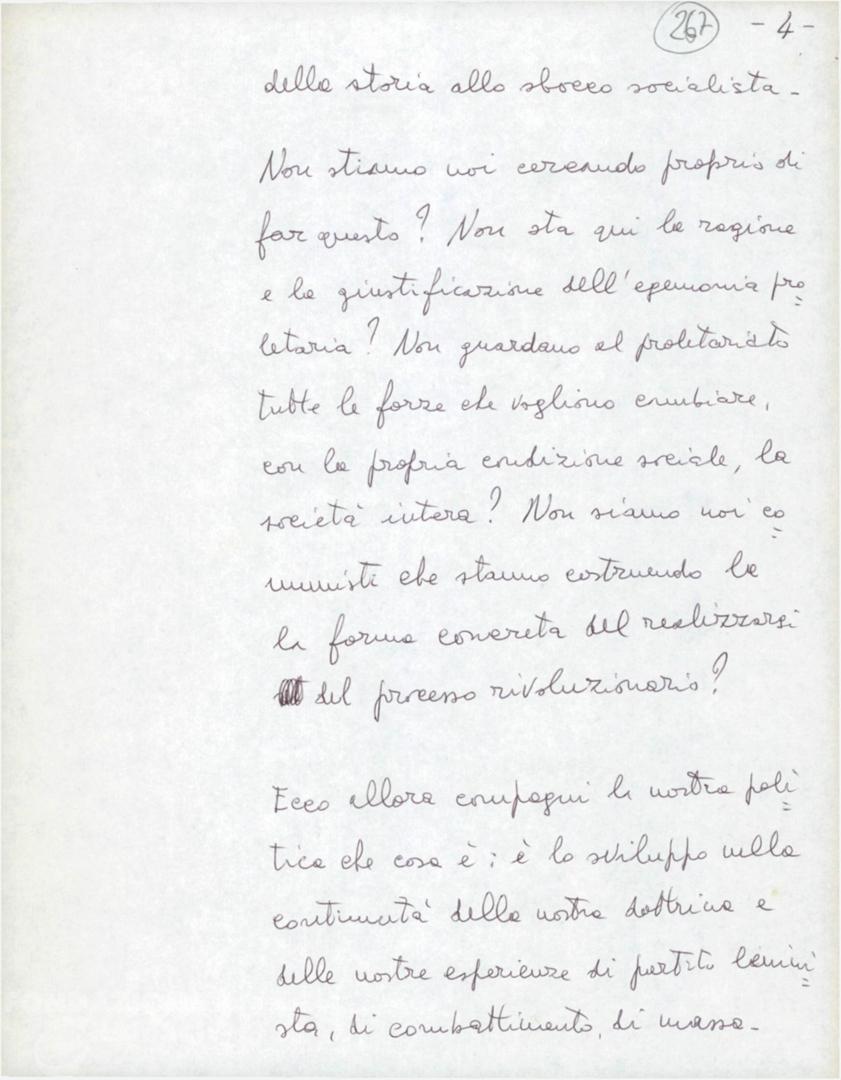 267 - 4 -
della storia allo sbocco socialista -
Non stiamo noi cercando proprio di
far questo? Non sta qui la ragione
e la giustificazione dell'egemonia pro=
letaria? Non guardano al proletariato
tutte le forze che vogliono cambiare,
con la propria condizione sociale, la
società intera? Non siamo noi co=
munisti che stanno costruendo la
la forma concreta del realizzarsi
del processo rivoluzionario?
Ecco allora compagni la nostra poli=
tica che cosa è: è lo sviluppo nella
continuità della nostra dottrina e
delle nostre esperienze di partito lenini=
sta, di combattimento, di massa -